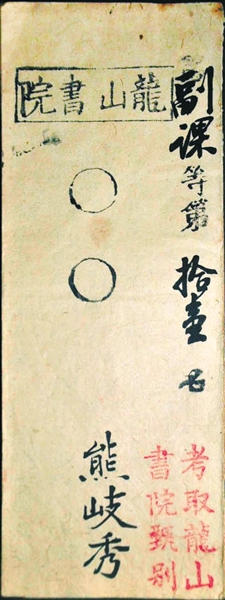 龍山書院
副課等第拾壹名
考取龍山
書院甄別
熊岐秀